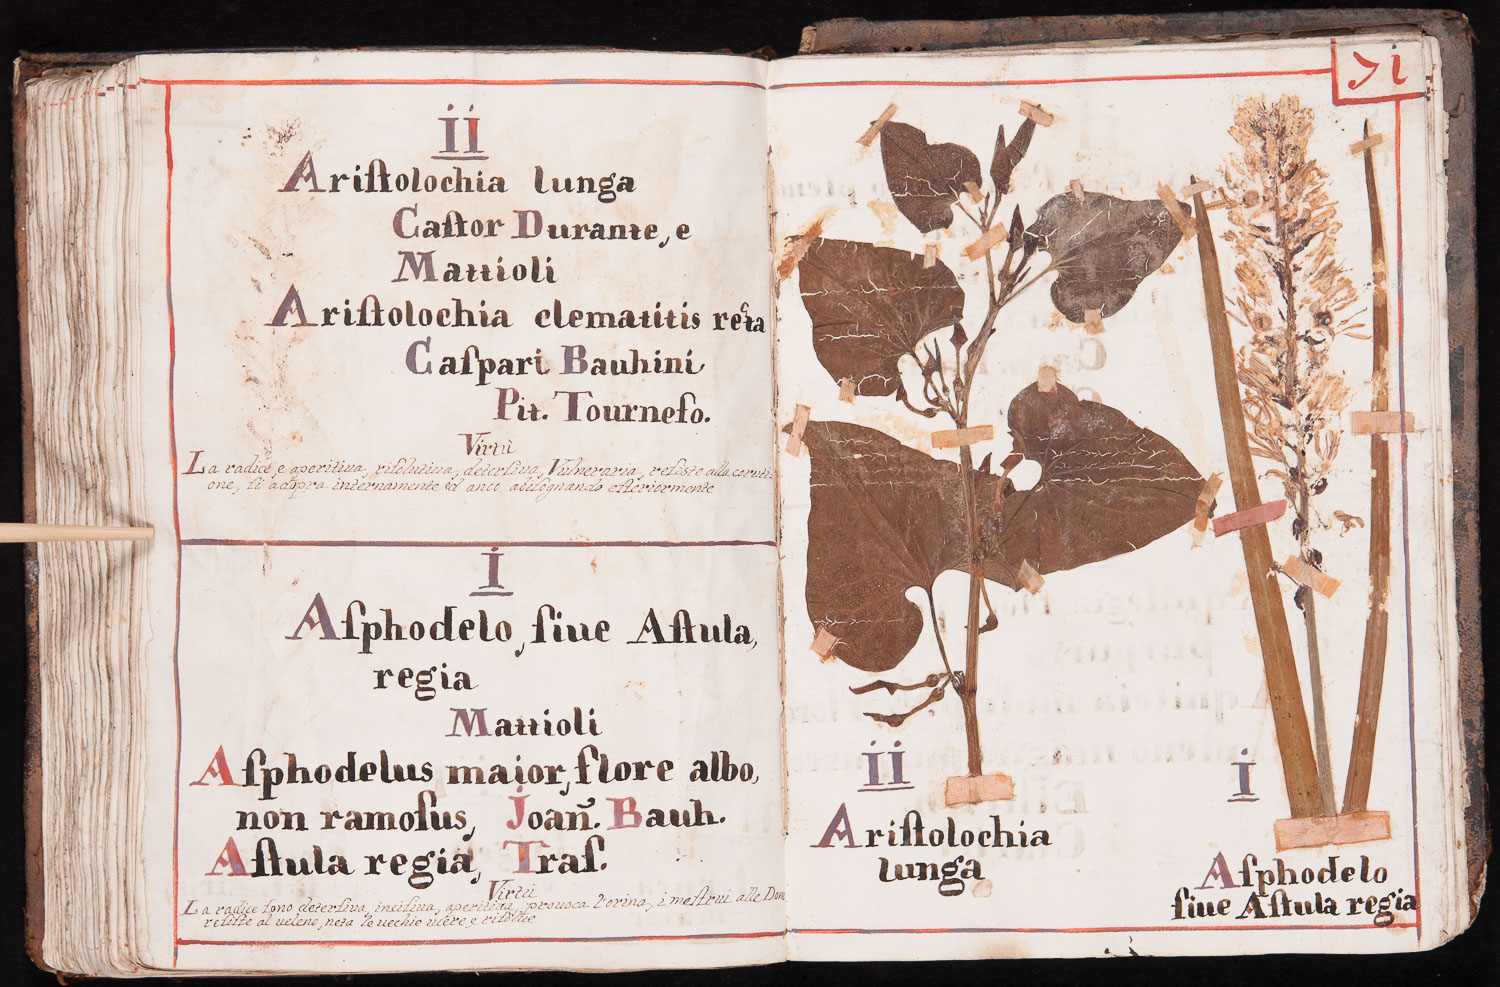 ii
Ariſtolochia lunga
Caſtor Durante, e
Mattioli
Ariſtolochia clematitis recta
Caſpari Bauhini
Pit. Tourneſo.
Virtù
La radice e aperitiva, riſolutiva, deterſiva, Vulneraria, reſiste alla corutti
one, ſi adopra internamente ed anco abisognando eſteriormente
i
Aſphodelo, ſiue Aſtula,
regia
Mattioli
Aſphodelus maior, flore albo,
non ramoſus, Joañ. Bauh.
Aſtula regia, Traſ.
Virtù
La radice ſono deterſiva, inciſiva, aperitiva, provoca l'orina, i mestrui alle Don
reſiste al veleno, neta le vechie ulcere e riſolve
71
ii
Ariſtolochia
lunga
i
Aſphodelo
ſiue Aſtula regia